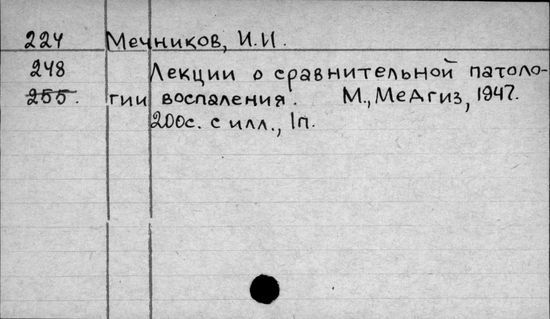 224 Мечников, И.И.
248 Лекции о сравнительной патоло-
255. гии воспаления. М., Медгиз, 1947.
200с. с илл., 1п.